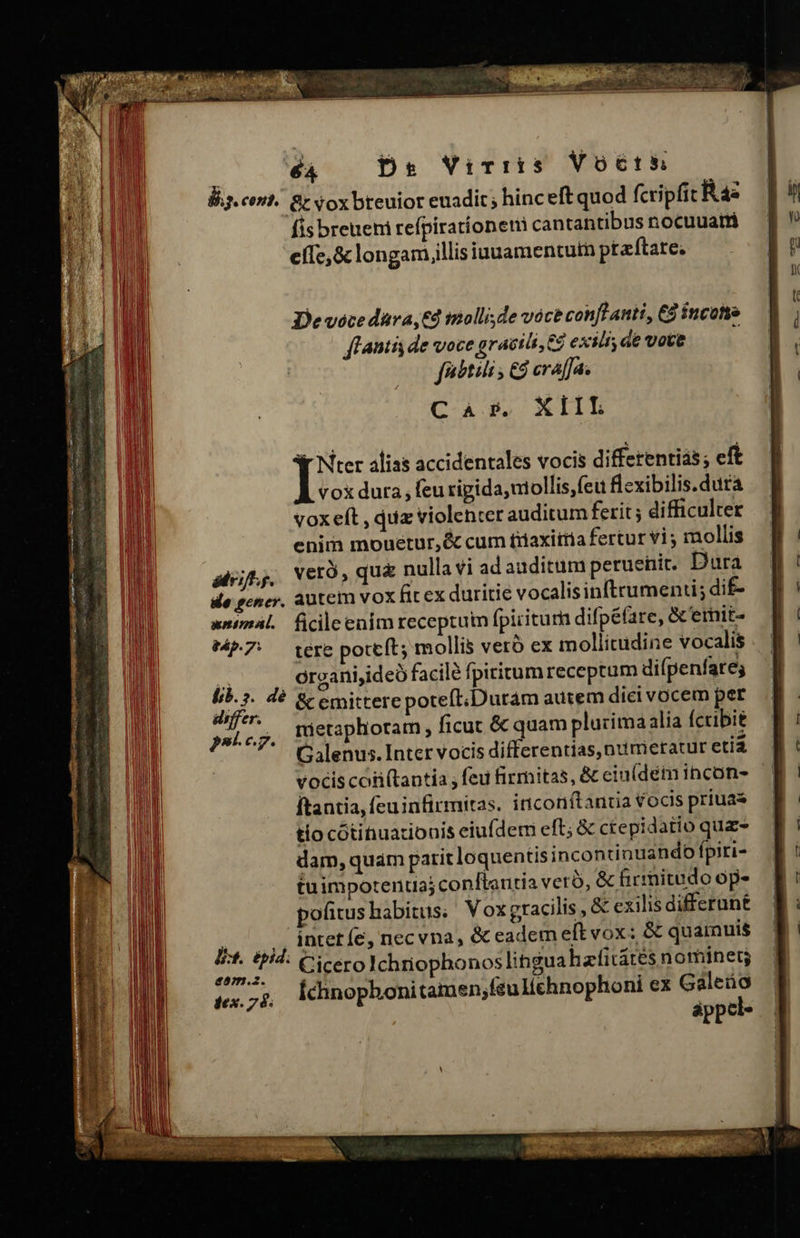 64 De Vitiis Vocis
li.3. cont. & vox breuior euadit; hinc est quod scripsit Ra-
sis breueni respirationem cantantibus nocuuam
esse, & longam, illis iuuamentum præstare.
De voce dura, & molli; de voce constanti, & incon-
stanti; de voce gracili, & exili; de voce
subtili, & crassa.
CAP. XIII.
INter alias accidentales vocis differentias; est
vox dura, seu rigida, mollis, seu flexibilis. dura
vox est, quæ violenter auditum ferit; difficulter
enim mouetur, & cum maxima fertur vi; mollis
arist. 5. verò, quæ nulla vi ad auditum peruenit. Dura
de gener. autem vox fit ex duritie vocalis instrumenti; dif-
animal. ficile enim receptum spiritum dispēsare, & emit-
cap. 7. tere potest; mollis verò ex mollitudine vocalis
organi, ideò facilè spiritum receptum dispensare,
lib. 3. de & emittere potest. Duram autem dici vocem per
differ. metaphoram, sicut & quam plurima alia scribit
pul. c. 7. Galenus. Inter vocis differentias, numeratur etiā
vocis constantia, seu firmitas, & eiusdem incon-
stantia, seu infirmitas. inconstantia vocis priua-
tio cōtinuationis eiusdem est; & crepidatio quæ-
dam, quam parit loquentis incontinuando spiri-
tu impotentia; constantia verò, & firmitudo op-
positus habitus. Vox gracilis, & exilis differunt
inter se, nec vna, & eadem est vox: & quamuis
li. 1. epid. Cicero Ichnophonos lingua hæsitātes nominet;
com. 2. Ichnophoni tamen, seu Ischnophoni ex Galeno
tex. 78.
appel-